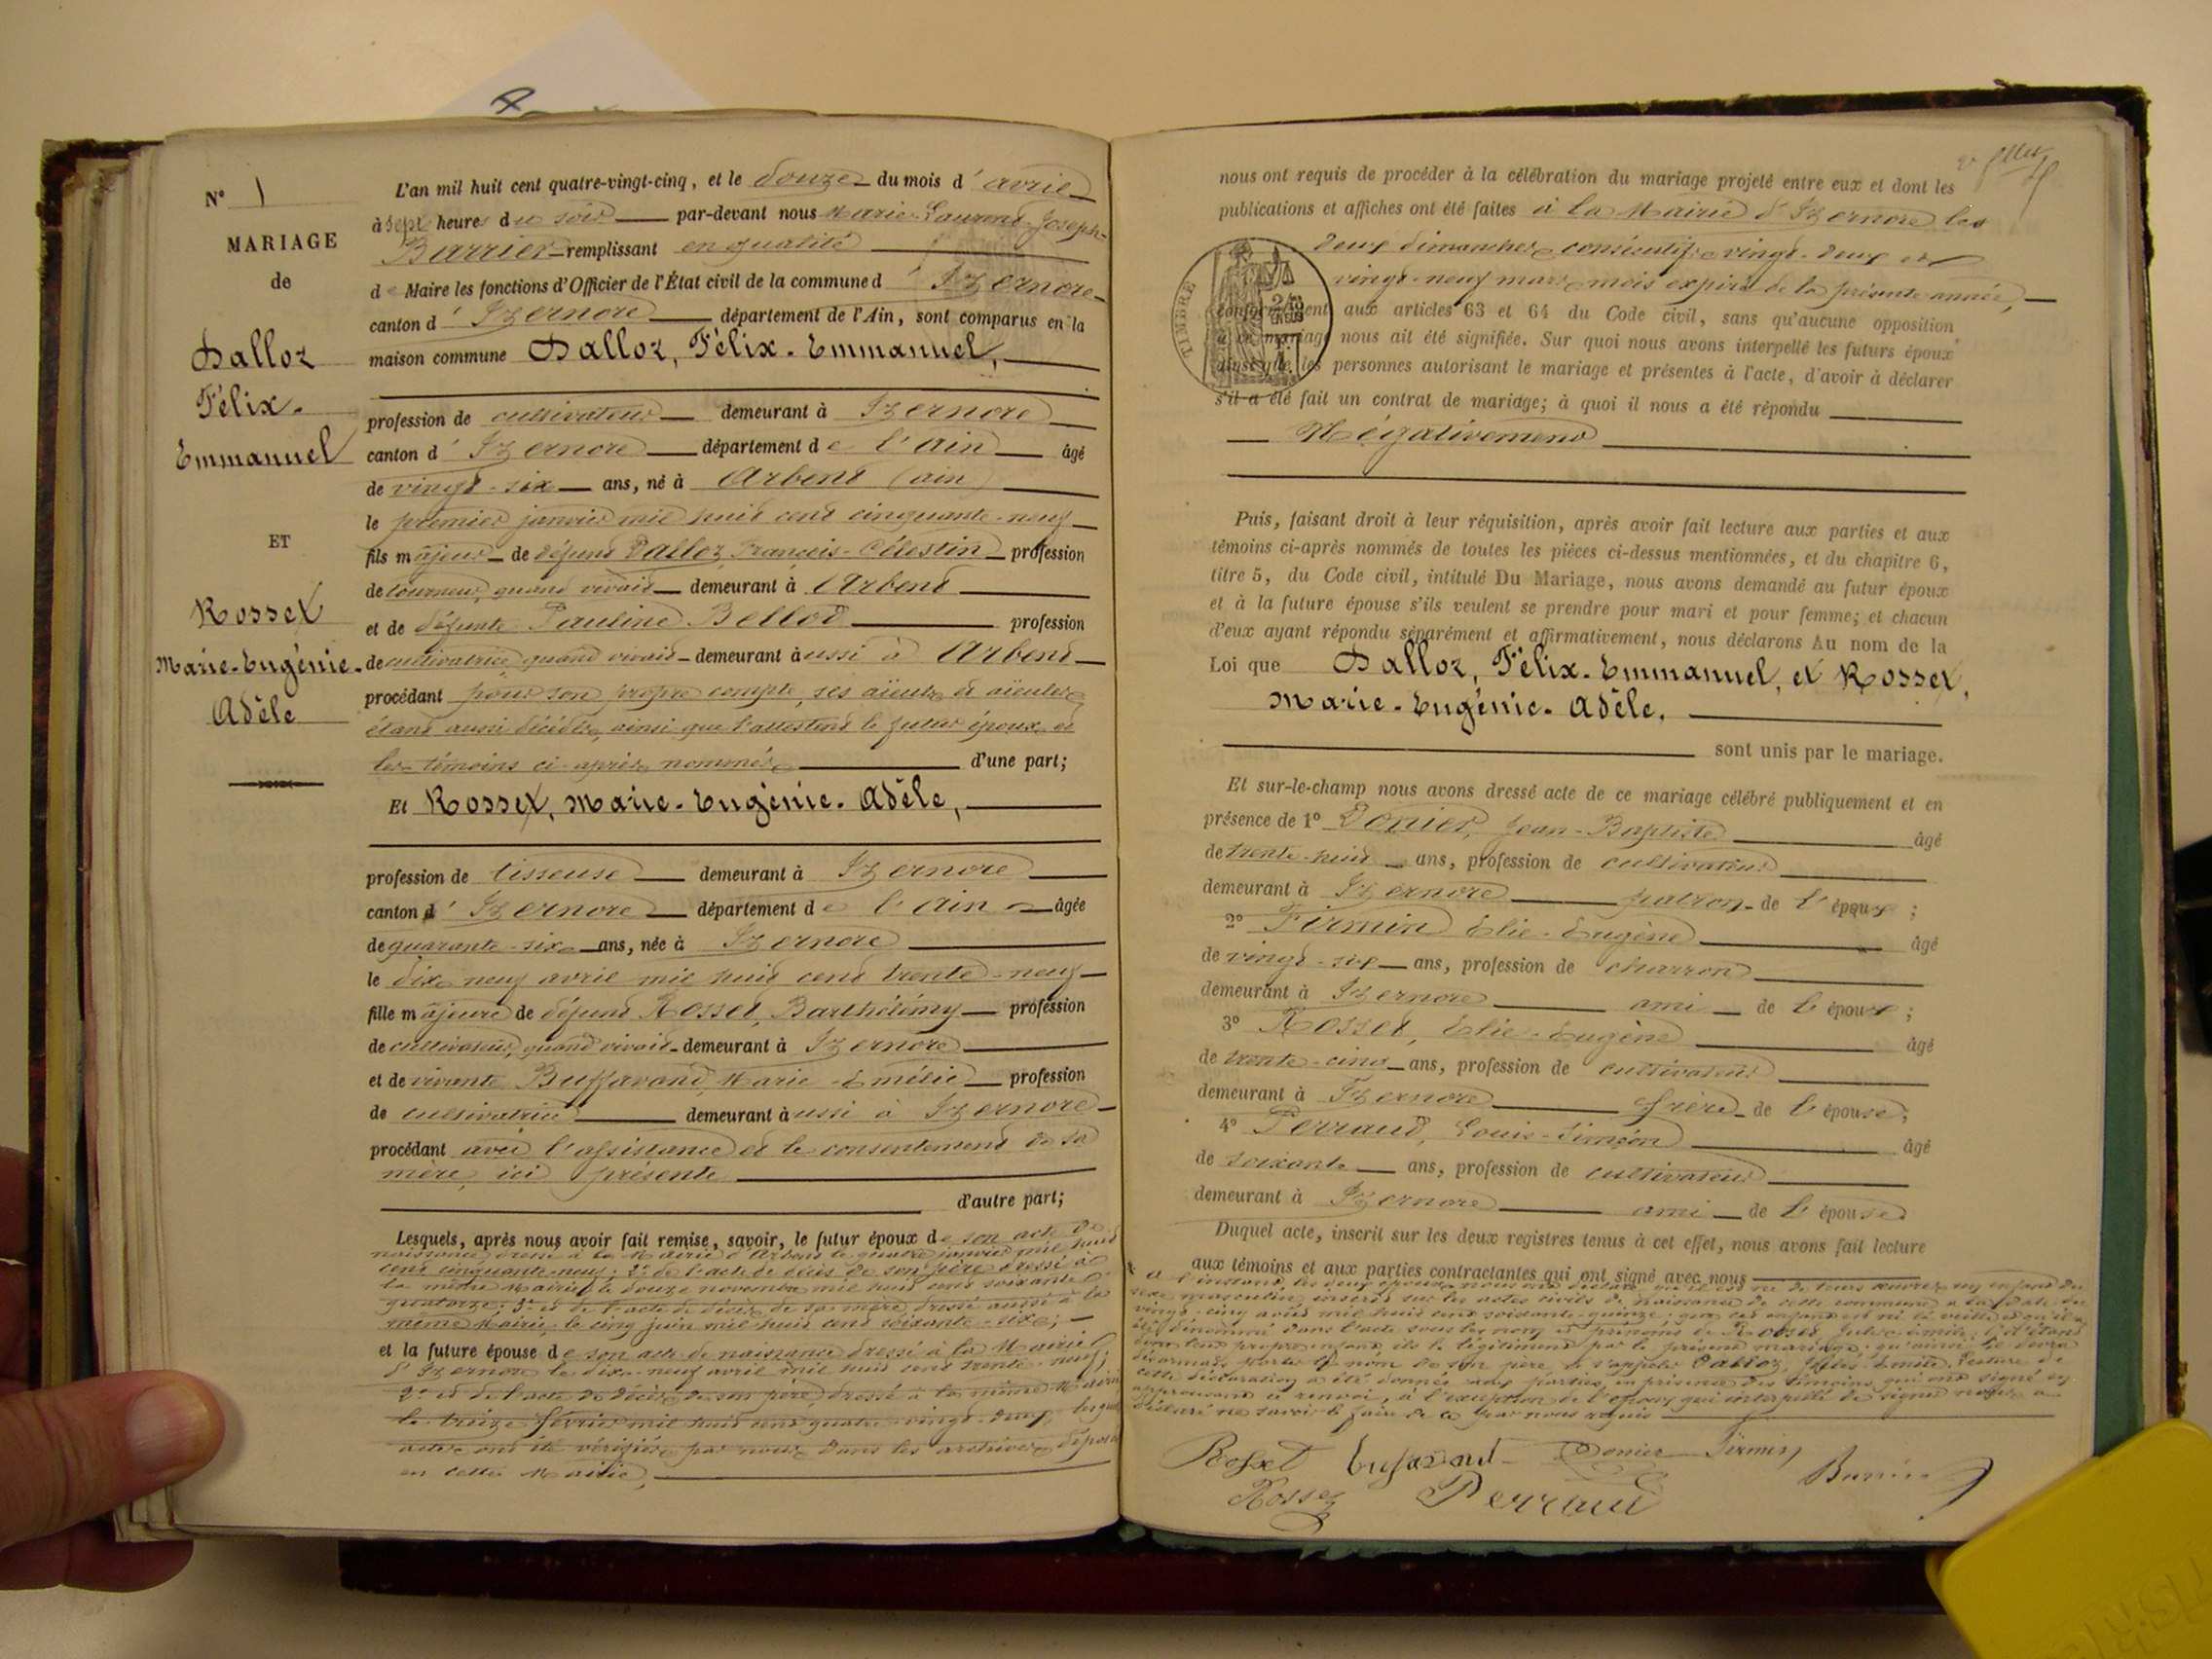 N° 1
MARIAGE
de
Dalloz
Félix-
Emmanuel
ET
Rosset
Marie-Eugénie-
Adèle
L'an mil huit cent quatre-vingt-cinq, et le douze du mois d'avril
à sept heures du soir par-devant nous Marie-Laurent-Joseph-
Barrier remplissant en qualité
de Maire les fonctions d'Officier de l'État civil de la commune d'Izernore
canton d'Izernore département de l'Ain, sont comparus en la
maison commune Dalloz, Félix-Emmanuel,
profession de cultivateur demeurant à Izernore
canton d'Izernore département de l'Ain âgé
de vingt-six ans, né à Arbent (ain)
le premier janvier mil huit cent cinquante-neuf
fils majeur de défunt Dalloz, François-Célestin profession
de tourneur, quand vivait demeurant à Arbent
et de défunte Pauline Bellod profession
de cultivatrice, quand vivait demeurant aussi à Arbent
procédant pour son propre compte, ses aïeuls et aïeules
étant aussi décédés, ainsi que l'attestent le futur époux et
les témoins ci-après nommés d'une part;
Et Rosset, Marie-Eugénie-Adèle,
profession de tisseuse demeurant à Izernore
canton d'Izernore département de l'Ain âgée
de quarante-six ans, née à Izernore
le dix-neuf avril mil huit cent trente-neuf
fille majeure de défunt Rosset, Barthélémy profession
de cultivateur, quand vivait demeurant à Izernore
et de vivante Buffavand, Marie-Emélie profession
de cultivatrice demeurant aussi à Izernore
procédant avec l'assistance et le consentement de sa
mère, ici présente
d'autre part;
Lesquels, après nous avoir fait remise, savoir, le futur époux de son acte de
naissance dressé à la Mairie d'Arbent le quatre janvier mil huit
cent cinquante-neuf; 2° de l'acte de décès de son père dressé à
la même Mairie le douze novembre mil huit cent soixante
quatorze; 3° et de l'acte de décès de sa mère dressé aussi à la
même Mairie, le cinq juin mil huit cent soixante-six;
et la future épouse de son acte de naissance dressé à la Mairie
d'Izernore le dix-neuf avril mil huit cent trente-neuf;
2° et de l'acte de décès de son père, dressé à la même Mairie
le treize février mil huit cent quatre-vingt-deux, lesquels
actes ont été vérifiés par nous dans les archives déposées
en cette Mairie,
nous ont requis de procéder à la célébration du mariage projeté entre eux et dont les
publications et affiches ont été faites à la Mairie d'Izernore les
deux dimanches consécutifs vingt-deux et
vingt-neuf mars mois expiré de la présente année,
TIMBRE
conformément aux articles 63 et 64 du Code civil, sans qu'aucune opposition
à ce mariage nous ait été signifiée. Sur quoi nous avons interpellé les futurs époux
ainsi que les personnes autorisant le mariage et présentes à l'acte, d'avoir à déclarer
s'il a été fait un contrat de mariage; à quoi il nous a été répondu
Négativement
Puis, faisant droit à leur réquisition, après avoir fait lecture aux parties et aux
témoins ci-après nommés de toutes les pièces ci-dessus mentionnées, et du chapitre 6,
titre 5, du Code civil, intitulé Du Mariage, nous avons demandé au futur époux
et à la future épouse s'ils veulent se prendre pour mari et pour femme; et chacun
d'eux ayant répondu séparément et affirmativement, nous déclarons Au nom de la
Loi que Dalloz, Félix-Emmanuel, et Rosset,
Marie-Eugénie-Adèle.
sont unis par le mariage.
Et sur-le-champ nous avons dressé acte de ce mariage célébré publiquement et en
présence de 1° Donier, Jean-Baptiste âgé
de trente-huit ans, profession de cultivateur
demeurant à Izernore patron de l'époux;
2° Firmin Elie-Eugène âgé
de vingt-six ans, profession de charron
demeurant à Izernore ami de l'époux;
3° Rosset, Elie-Eugène âgé
de trente-cinq ans, profession de cultivateur
demeurant à Izernore frère de l'épouse;
4° Perraud, Louis-Siméon âgé
de soixante ans, profession de cultivateur
demeurant à Izernore ami de l'épouse
Duquel acte, inscrit sur les deux registres tenus à cet effet, nous avons fait lecture
aux témoins et aux parties contractantes qui ont signé avec nous
et à l'instant les deux époux nous ont déclaré qu'il est né de leurs œuvres un enfant du
sexe masculin inscrit sur les actes civils de naissance de cette commune à la date du
vingt-cinq août mil huit cent soixante quinze, que cet enfant est né la veille et
dénommé dans l'acte sous les nom et prénoms de Rosset, Jules-Emile;
leur propre enfant, ils le légitiment par le présent mariage; qu'ainsi il devra
désormais porter le nom de son père et s'appeler Dalloz, Jules-Emile. Lecture de
cette déclaration a été donnée aux parties, en présence des témoins qui ont signé en
approuvant ce renvoi, à l'exception de l'époux qui interpellé de signer nous a
déclaré ne savoir le faire de ce par nous requis
Rosset Bufavand Donier Firmin
Rosset Perraud Barrier